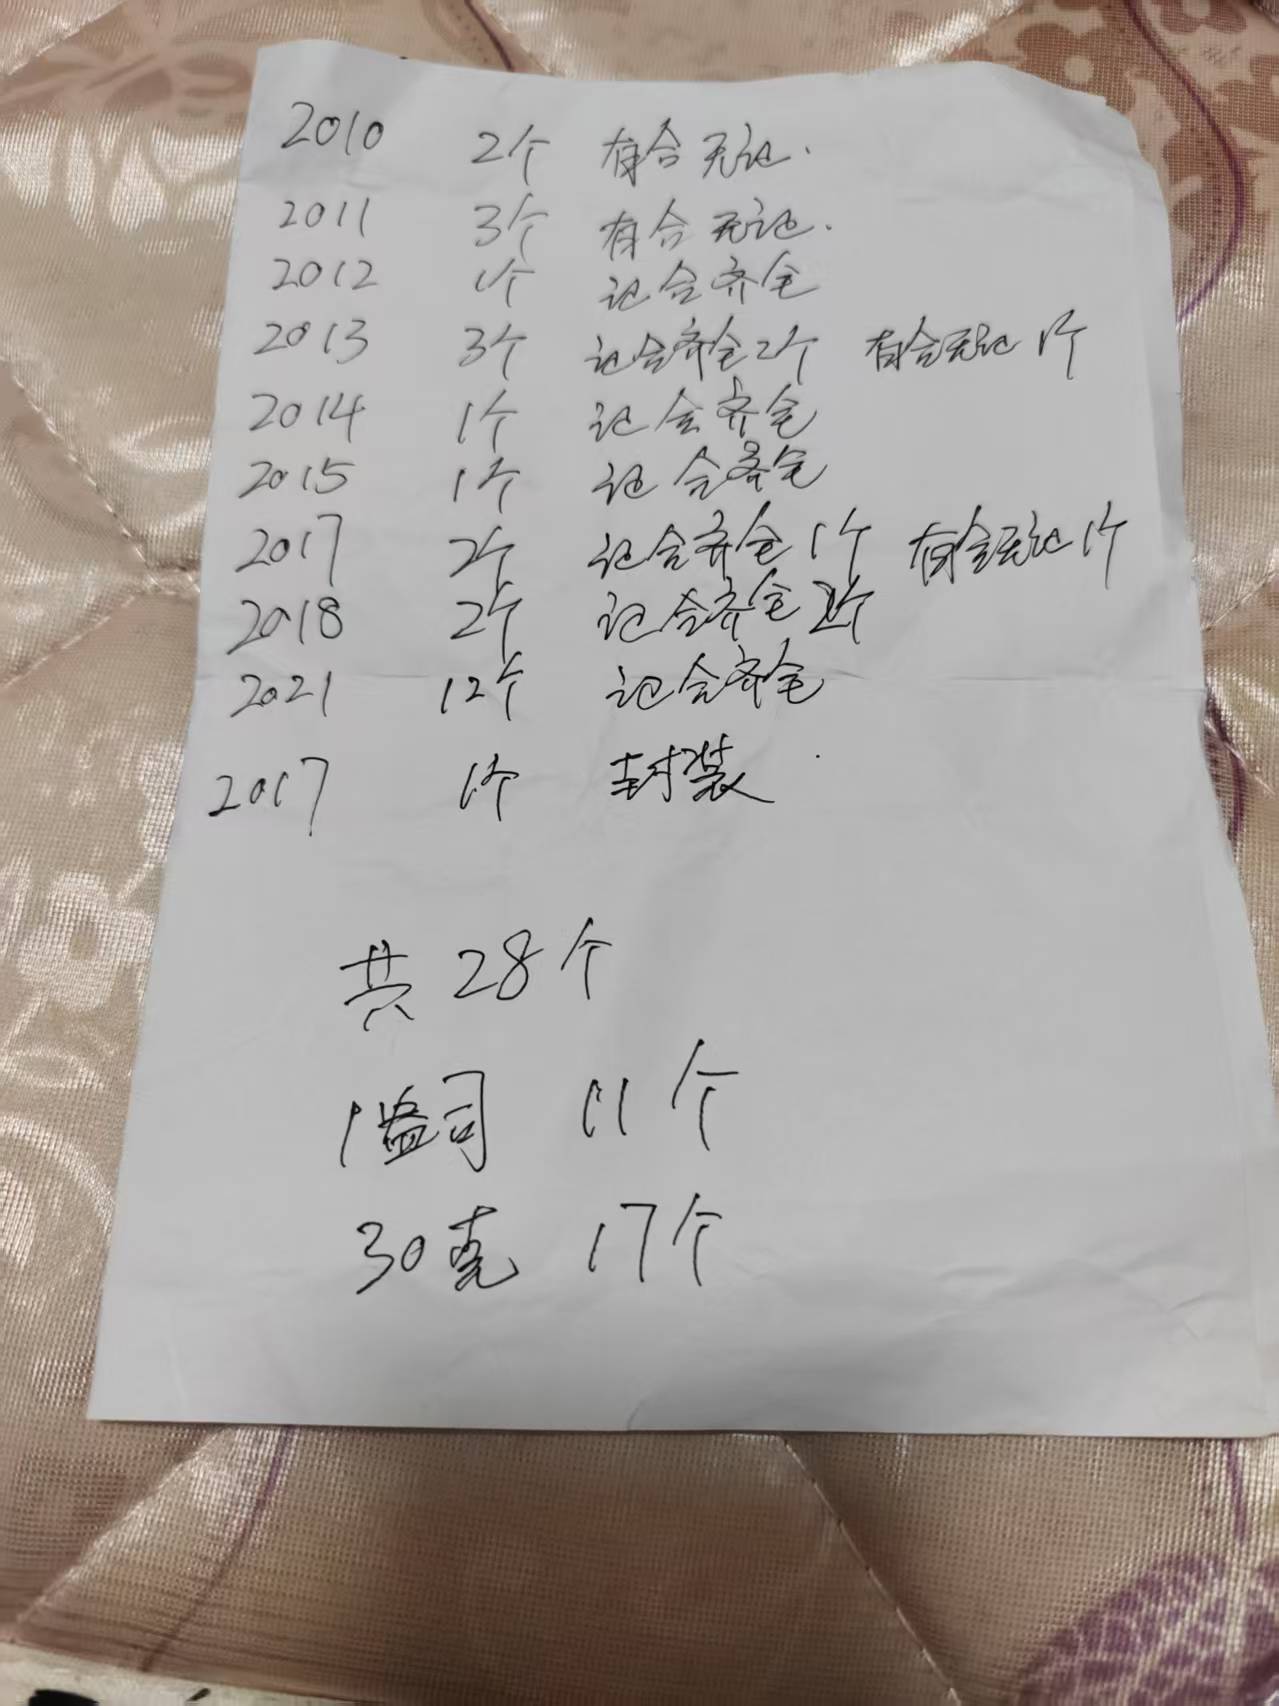 2010 2个 有合无记.
2011 3个 有合无记.
2012 1个 记合齐全
2013 3个 记合齐全2个 有合无记 1个
2014 1个 记合齐全
2015 1个 记合齐全
2017 2个 记合齐全 1个 有合无记 1个
2018 2个 记合齐全 2个
2021 12个 记合齐全
2017 1个 封装
共 28个
1盎司 11个
30克 17个